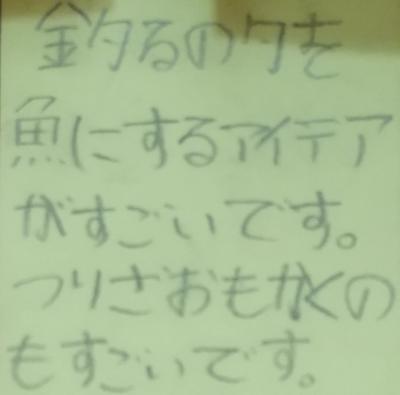 釣るの勺を
魚にするアイデア
がすごいです。
つりざおもかくの
もすごいです。